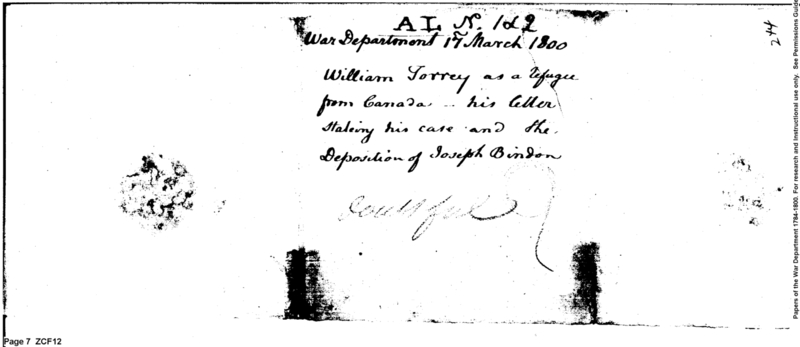 244
AL N. 1 & 2
War Department 17 March 1800
William Torrey as a Refugee
from Canada - his letter
stateing his case and the
Deposition of Joseph Bindon
doubtful
Page 7 ZCF12
Papers of the War Department 1784-1800. For research and instructional use only. See Permissions Guide